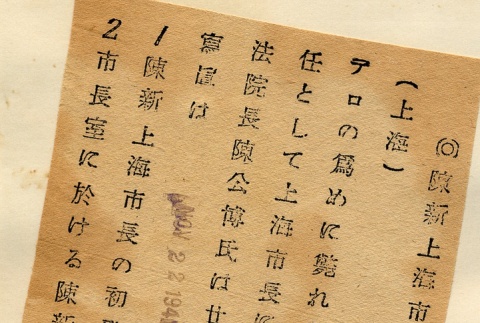 ◎陳新上海市
(上海)
テロの為めに斃れ
任として上海市長に
法院長陳公博氏は廿
寫眞は
1陳新上海市長の初
2市長室に於ける陳新
NOV 22 194